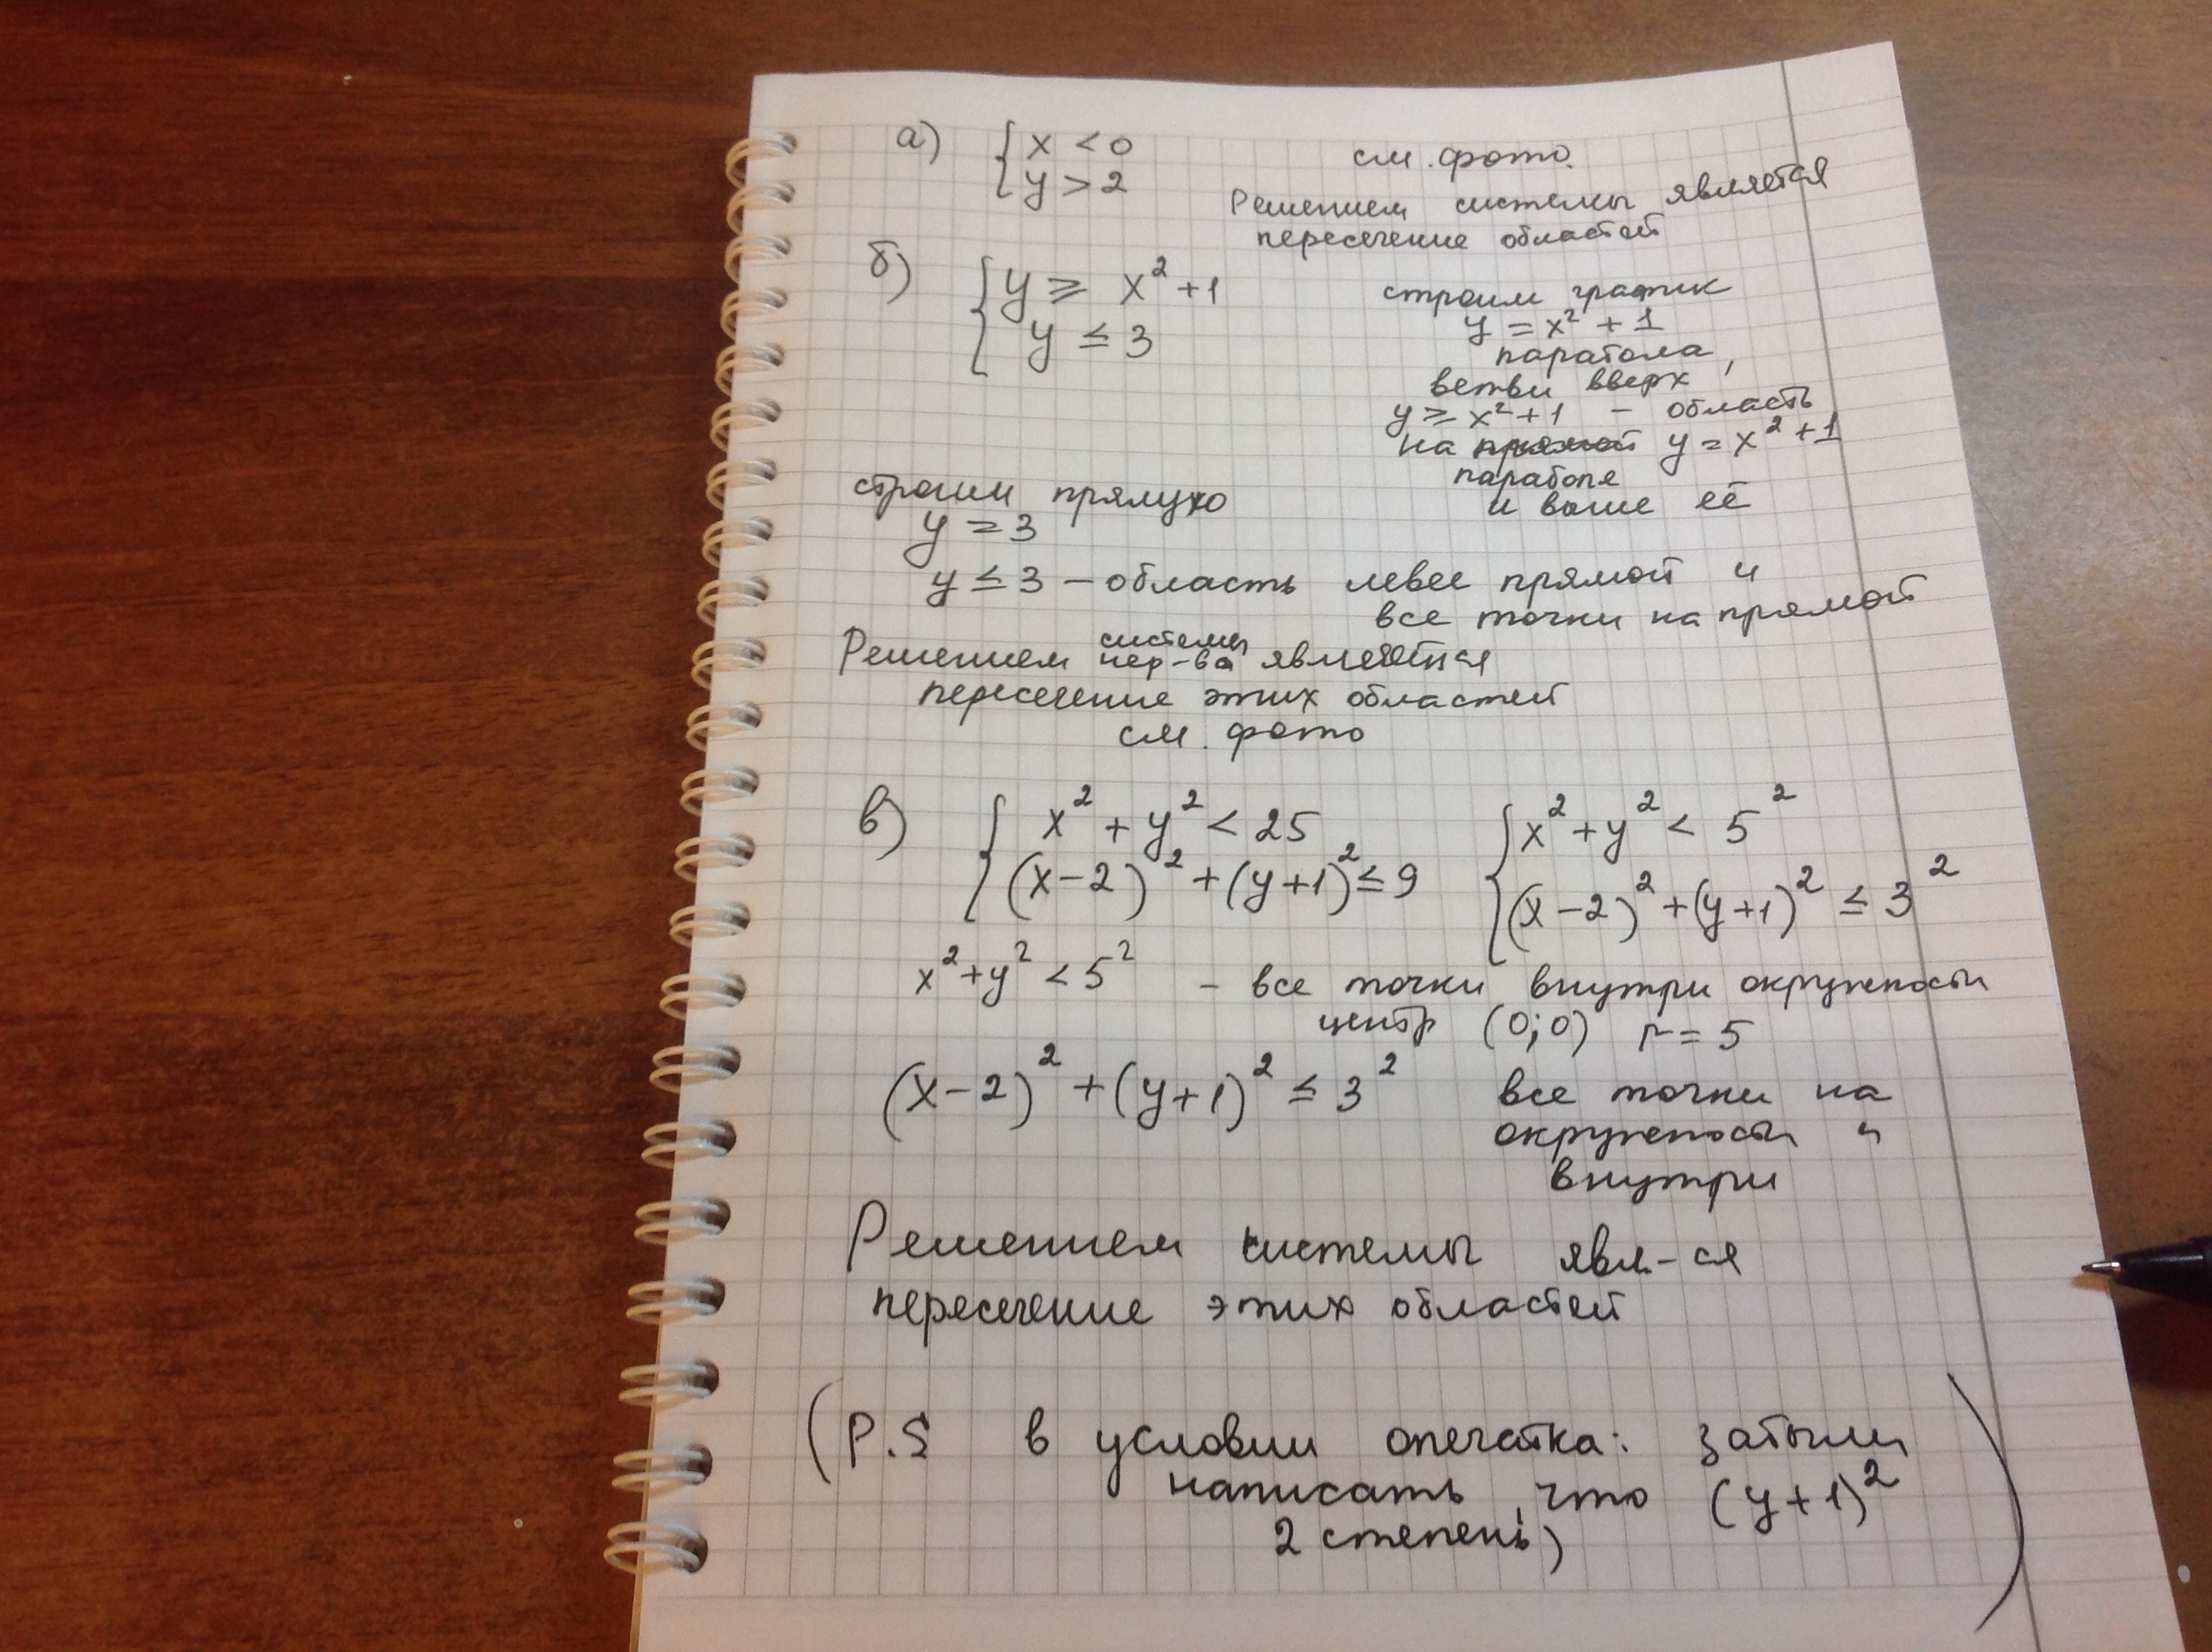 а) { x < 0
y > 2
см. фото.
Решением системы является
пересечение областей
б) { y ≥ x² + 1
y ≤ 3
строим график
y = x² + 1
парабола,
ветви вверх
y ≥ x² + 1 – область
на прямой y = x² + 1
параболе
и выше её
строим прямую
y = 3
y ≤ 3 – область левее прямой и
все точки на прямой
системы
Решением нер-ва является
пересечение этих областей
см. фото
в) { x² + y² < 25 { x² + y² < 5²
(x-2)² + (y+1)² ≤ 9 (x-2)² + (y+1)² ≤ 3²
x² + y² < 5² – все точки внутри окружности
центр (0;0) r = 5
(x-2)² + (y+1)² ≤ 3² все точки на
окружности и
внутри
Решением системы явл-ся
пересечение этих областей
(P.S в условии опечатка: забыли
написать, что (y+1)²
2 степень)